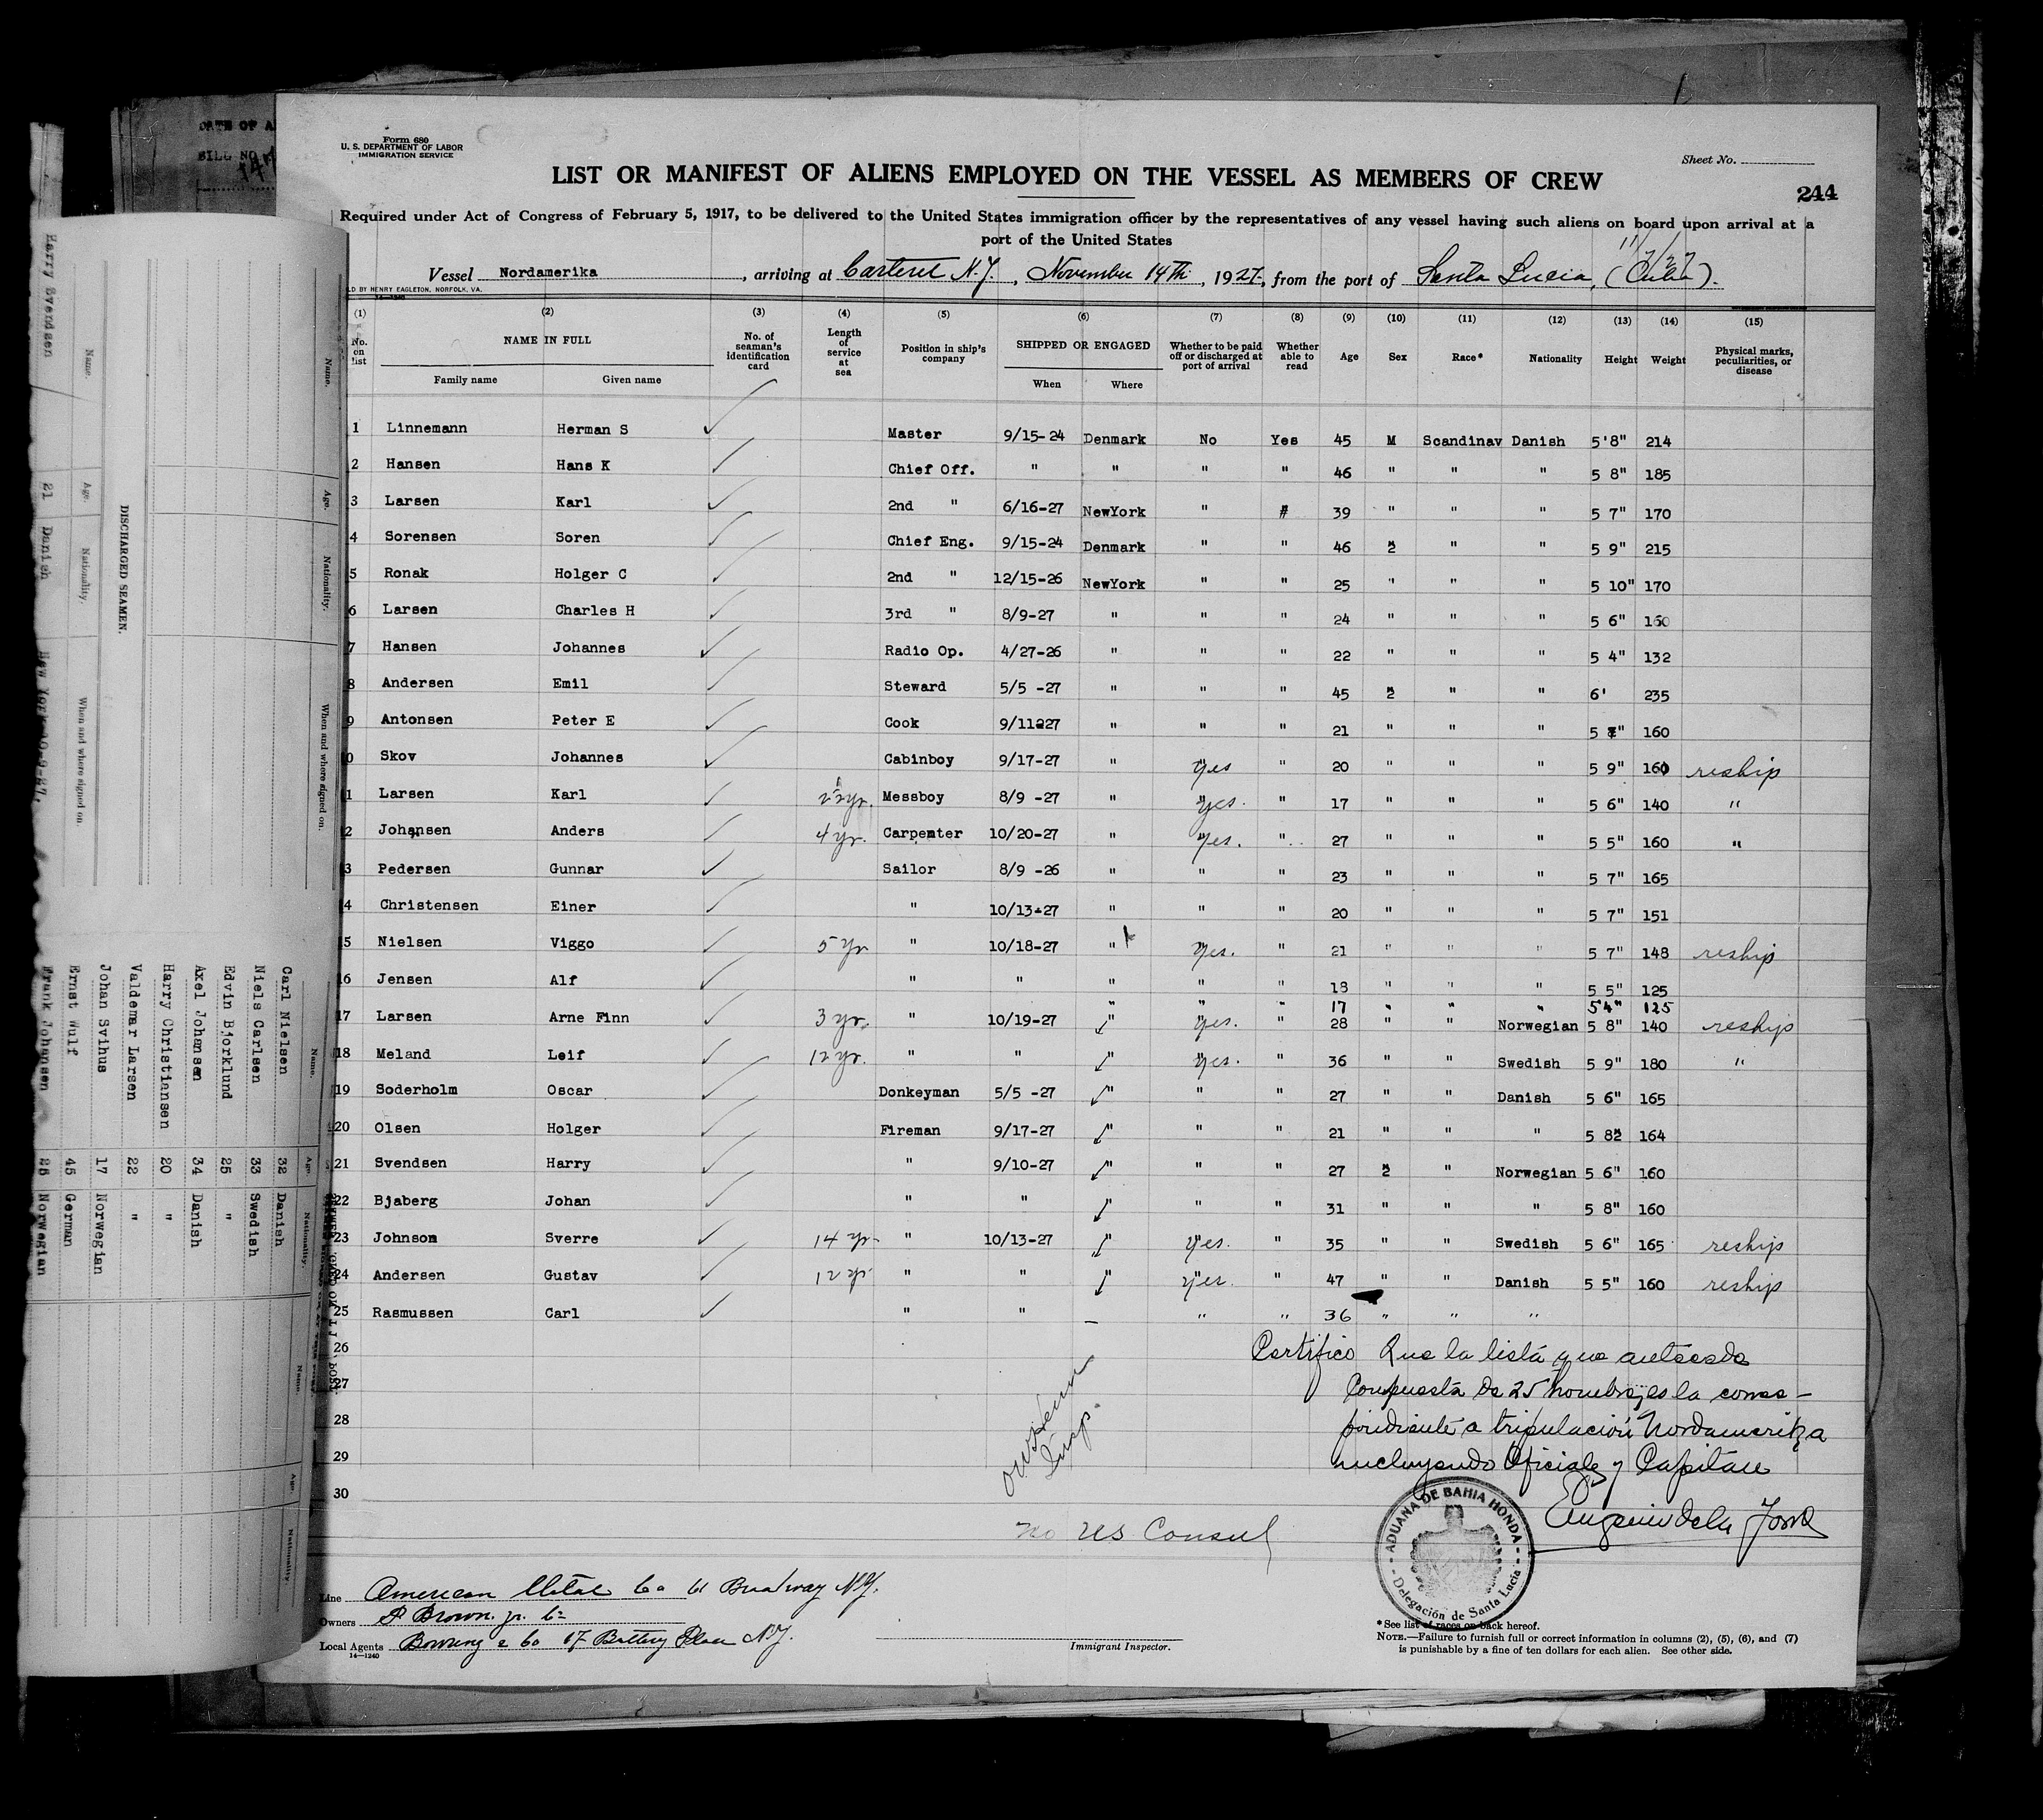 DATE OF A
BILL NO
Form 680
U. S. DEPARTMENT OF LABOR
IMMIGRATION SERVICE
Sheet No.
LIST OR MANIFEST OF ALIENS EMPLOYED ON THE VESSEL AS MEMBERS OF CREW
244
Required under Act of Congress of February 5, 1917, to be delivered to the United States immigration officer by the representatives of any vessel having such aliens on board upon arrival at a
port of the United States
11/7/27
Vessel Nordamerika, arriving at Carteret N.J., November 14Th, 1927, from the port of Santa Lucia, (Cuba).
LD BY HENRY EAGLETON, NORFOLK, VA.
14-1240
(1) (2) (3) (4) (5) (6) (7) (8) (9) (10) (11) (12) (13) (14) (15)
No. on list NAME IN FULL No. of seaman's identification card Length of service at sea Position in ship's company SHIPPED OR ENGAGED Whether to be paid off or discharged at port of arrival Whether able to read Age Sex Race* Nationality Height Weight Physical marks, peculiarities, or disease
Family name Given name When Where
1 Linnemann Herman S Master 9/15-24 Denmark No Yes 45 M Scandinav Danish 5'8" 214
2 Hansen Hans K Chief Off. " " " " 46 " " " 5 8" 185
3 Larsen Karl 2nd " 6/16-27 NewYork " # 39 " " " 5 7" 170
4 Sorensen Soren Chief Eng. 9/15-24 Denmark " " 46 2 " " 5 9" 215
5 Ronak Holger C 2nd " 12/15-26 NewYork " " 25 " " " 5 10" 170
6 Larsen Charles H 3rd " 8/9-27 " " " 24 " " " 5 6" 160
7 Hansen Johannes Radio Op. 4/27-26 " " " 22 " " " 5 4" 132
8 Andersen Emil Steward 5/5 -27 " " " 45 2 " " 6' 235
9 Antonsen Peter E Cook 9/11-27 " " " 21 " " " 5 " 160
0 Skov Johannes Cabinboy 9/17-27 " Yes " 20 " " " 5 9" 160 reship
1 Larsen Karl 2½yr. Messboy 8/9 -27 " Yes. " 17 " " " 5 6" 140 "
2 Johansen Anders 4 yr. Carpenter 10/20-27 " Yes. " 27 " " " 5 5" 160 "
3 Pedersen Gunnar Sailor 8/9 -26 " " " 23 " " " 5 7" 165
4 Christensen Einer " 10/13-27 " " " 20 " " " 5 7" 151
5 Nielsen Viggo 5 yr " 10/18-27 " Yes. " 21 " " " 5 7" 148 reship
16 Jensen Alf " " " " " 18 " " " 5 5" 125
" " " 17 " " " 5 4" 125
17 Larsen Arne Finn 3 yr. " 10/19-27 " Yes. " 28 " " Norwegian 5 8" 140 reship
18 Meland Leif 12 yr. " " " Yes. " 36 " " Swedish 5 9" 180 "
19 Soderholm Oscar Donkeyman 5/5 -27 " " " 27 " " Danish 5 6" 165
20 Olsen Holger Fireman 9/17-27 " " " 21 " " " 5 82 164
21 Svendsen Harry " 9/10-27 " " " 27 2 " Norwegian 5 6" 160
22 Bjaberg Johan " " " " " 31 " " " 5 8" 160
23 Johnson Sverre 14 yr- " 10/13-27 " Yes. " 35 " " Swedish 5 6" 165 reship
24 Andersen Gustav 12 yr " " " Yes. " 47 " " Danish 5 5" 160 reship
25 Rasmussen Carl " " " " 36 " " "
26 Certifico Que la lista que antecede
27 Compuesta de 25 hombres, es la corres-
28 pondiente a tripulación Nordamerika
29 incluyendo Oficiales y Capitan
30
Insp.
no US Consul
Eugenio de la
ADUANA DE BAHIA HONDA
Delegación de Santa Lucia
Line American Metal Co 61 Broadway N.Y.
Owners A Brown. jr. Co
Local Agents Bowring & Co 17 Battery Place N.Y.
14-1240
Immigrant Inspector.
*See list of races on back hereof.
NOTE.—Failure to furnish full or correct information in columns (2), (5), (6), and (7)
is punishable by a fine of ten dollars for each alien. See other side.
Name. Age. Nationality. When and where signed on.
DISCHARGED SEAMEN.
Name. Age. Nationality. When and where signed on.
Harry Svendsen 21 Danish New York 10-9-27.
Name. Age. Nationality.
Carl Nielsen 32 Danish
Niels Carlsen 33 Swedish
Edvin Bjorklund 25 "
Axel Johansen 34 Danish
Harry Christiansen 20 "
Valdemar Larsen 22 "
Johan Svihus 17 Norwegian
Ernst Wulf 45 German
Frank Johansen 25 Norwegian
Name. Age. Nationality.